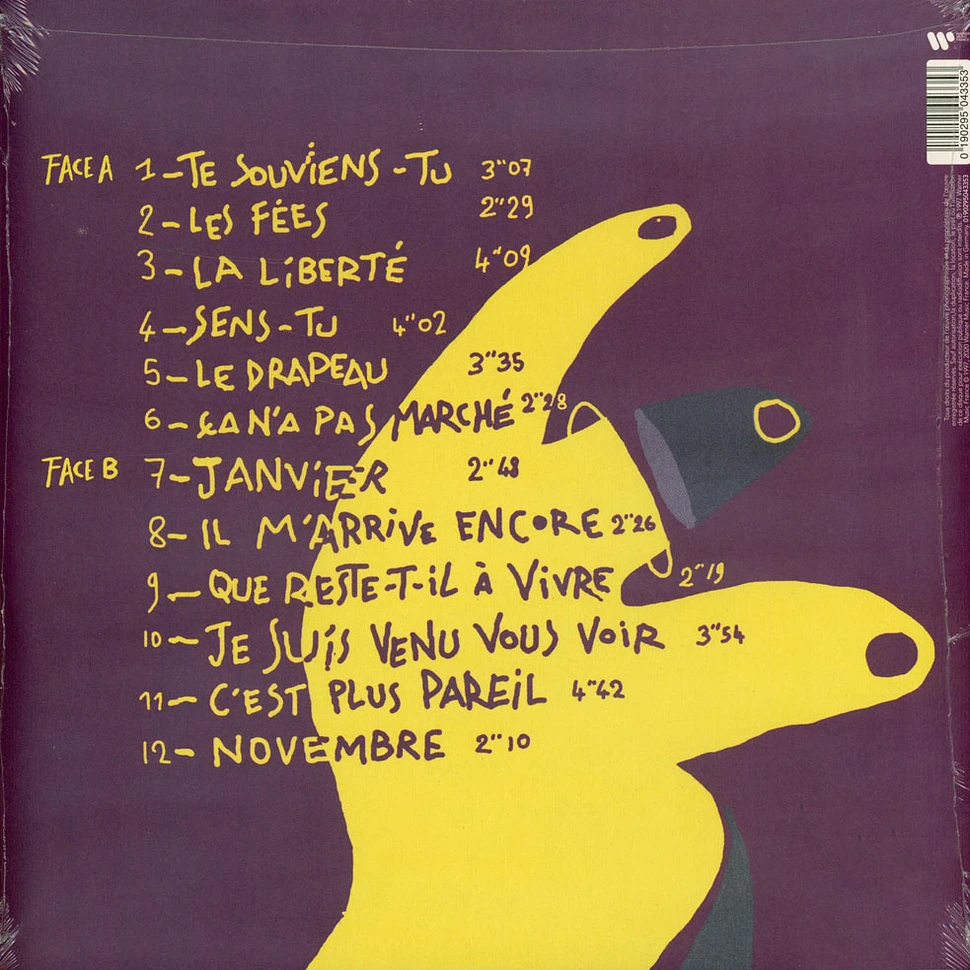 FACE A 1-TE SOUViENS-TU 3"07
2-LES FÉES 2"29
3-LA LiBERTÉ 4"09
4-SENS-TU 4"02
5-LE DRAPEAU 3"35
6-ÇA N'A PAS MARCHÉ 2"28
FACE B 7-JANViER 2"48
8-IL M'ARRiVE ENCORE 2"26
9-QUE RESTE-T-iL À ViVRE 2"19
10-JE SUiS VENU VOUS VOiR 3"54
11-C'EST PLUS PAREiL 4"42
12-NOVEMBRE 2"10
0 190295 043353
Tous droits du producteur de l'œuvre phonographique et du propriétaire de l'œuvre
enregistrée réservés. Sauf autorisation, la duplication, la location, le prêt ou l'utilisation
de ce disque pour exécution publique ou radiodiffusion sont interdits. ℗ 1997 Warner
Music France © 1997, 2020 Warner Music France. Made in Germany. 0190295043353